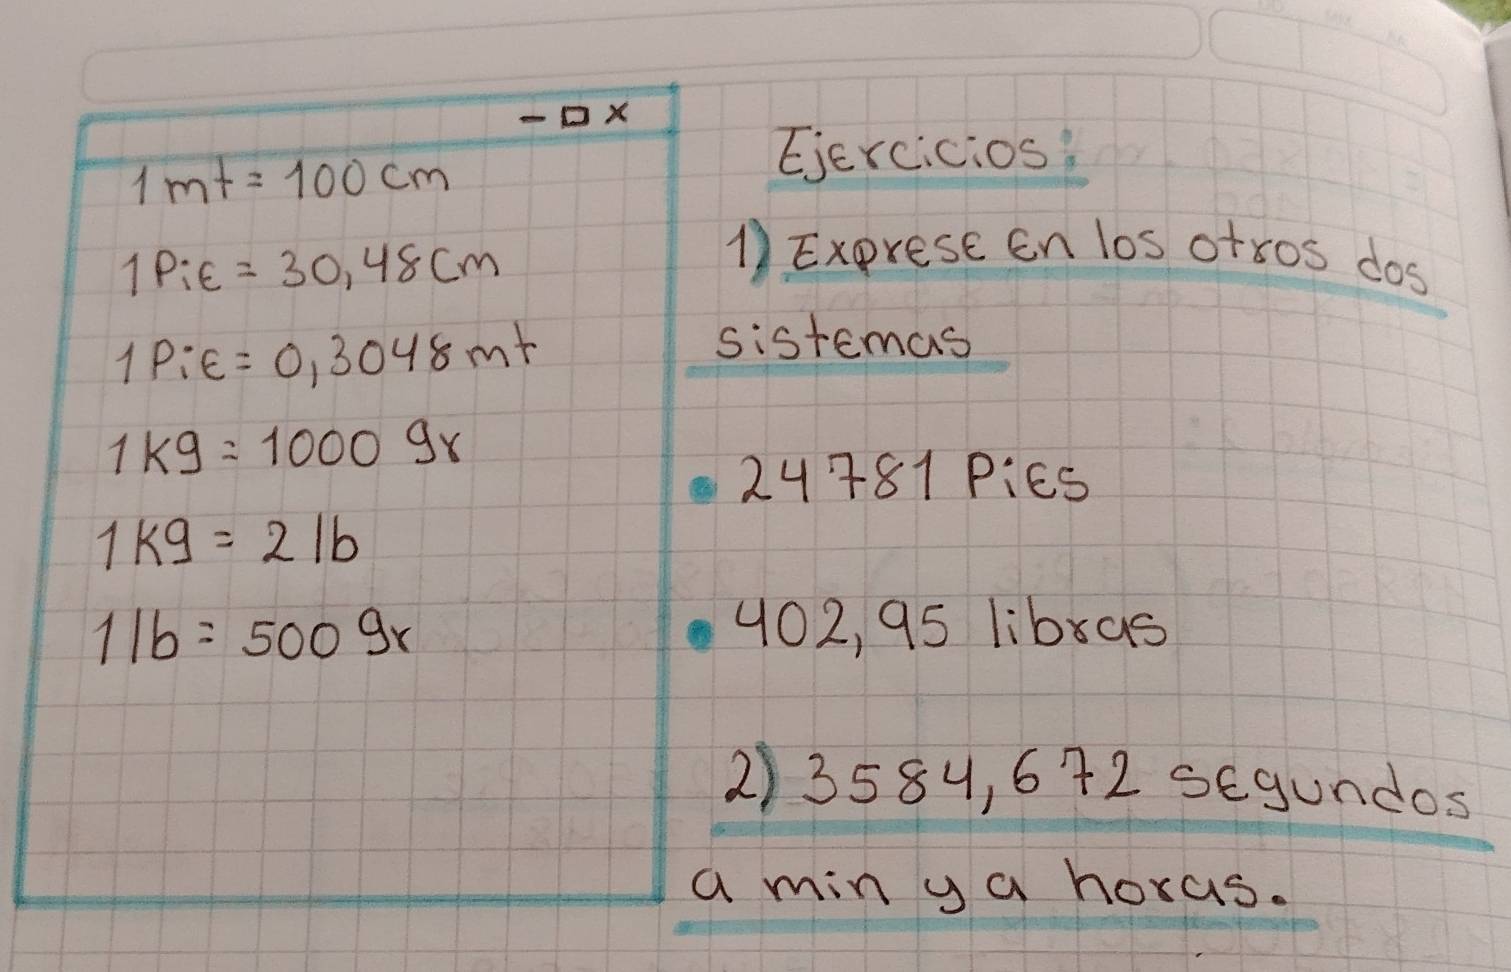 1 mt = 100 cm
1 Pie = 30,48 cm
1 Pie = 0,3048 mt
1 Kg = 1000 gr
1 Kg = 2 lb
1 lb = 500 gr
Ejercicios:
1) Exprese en los otros dos
sistemas
• 24781 Pies
• 402,95 libras
2) 3584,672 segundos
a min y a horas.